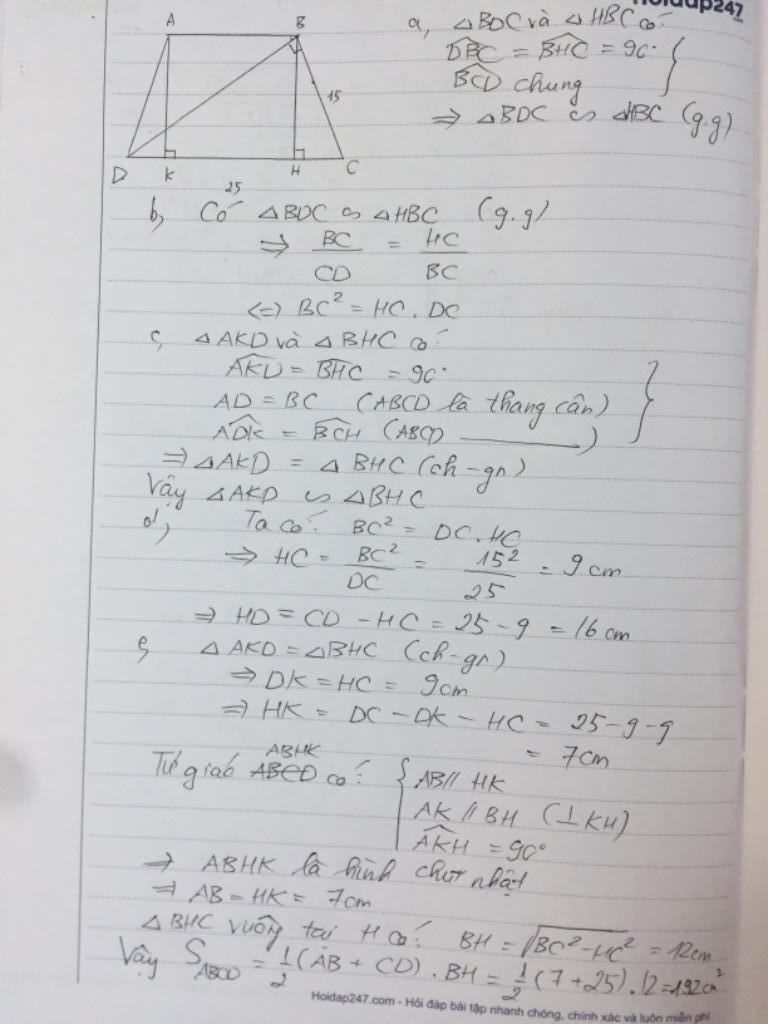 Hoidap247
.com
A
B
15
D
K
H
C
25
a, △BDC và △HBC có:
DBC = BHC = 90°
BCD chung
⇒ △BDC ∽ △HBC (g.g)
b, Có △BDC ∽ △HBC (g.g)
⇒ BC/CD = HC/BC
<=> BC² = HC.DC
c, △AKD và △BHC có:
AKD = BHC = 90°
AD = BC (ABCD là thang cân)
ADK = BCH (ABCD ———)
⇒ △AKD = △BHC (ch-gn)
Vậy △AKD ∽ △BHC
d, Ta có: BC² = DC.HC
⇒ HC = BC²/DC = 15²/25 = 9cm
⇒ HD = CD - HC = 25 - 9 = 16cm
e, △AKD = △BHC (ch-gn)
⇒ DK = HC = 9cm
⇒ HK = DC - DK - HC = 25-9-9
= 7cm
ABHK
Tứ giác ABCD có: AB // HK
AK // BH (⊥KH)
AKH = 90°
⇒ ABHK là hình chữ nhật
⇒ AB = HK = 7cm
△BHC vuông tại H có: BH = √BC²-HC² = 12cm
Vậy S ABCD = 1/2(AB + CD).BH = 1/2(7+25).12 = 192cm²
Hoidap247.com - Hỏi đáp bài tập nhanh chóng, chính xác và luôn miễn phí